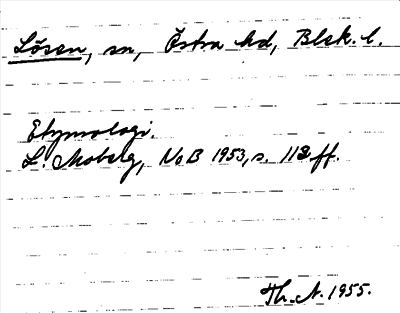 Lösen, sn, Östra hd, Blek. l.
Etymologi.
L. Moberg, NoB 1953, s. 112 ff.
Th. A. 1955.